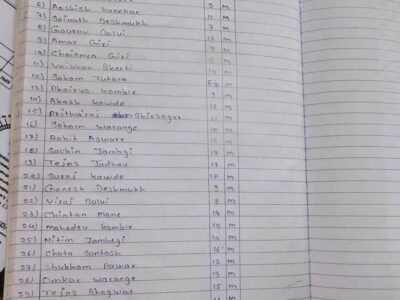 6) Aashish Kanekar 11 M
7) Sainath Deshmukh 7 M
8) Gourav Dalvi 13 M
9) Amar Giri
10) Chaitnya Giri M
11) Vaibhav Bharti 14 M
12) Soham Tutare 6½ M
13) Dhairya Kamble 9 M
14) Akash Kawde 10 M
15) Prithviraj Shirsagar 11 M
16) Soham Warange 10 M
17) Rohit Asware M
18) Sachin Jambgi 17 M
19) Tejas Jadhav 17 M
20) Suraj Kawde 17 M
21) Ganesh Deshmukh 9 M
22) Viraj Dalvi 8 M
23) Chintan Mane 14 M
24) Mahadev Kamble 15 M
25) Nitim Jambegi 14 M
26) Chota Santosh 16 M
27) Shubham Pawar 12 M
28) Omkar Warange 13 M
29) Tejas Bhagwat 15 M